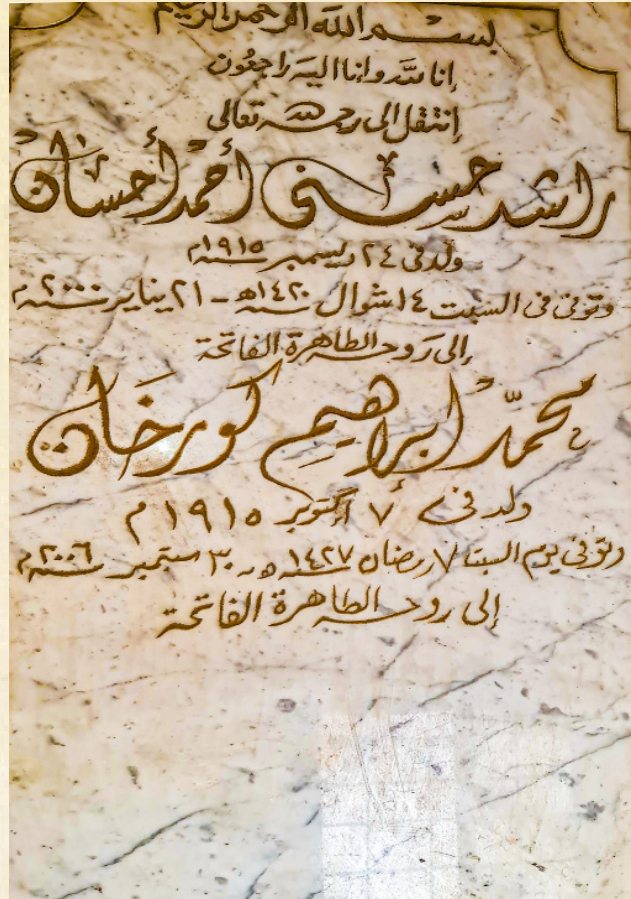 بسم الله الرحمن الرحيم
إنا لله وانا اليه راجعون
إنتقل إلى رحمة الله تعالى
راشد حسنى أحمد أحسان
ولد فى ٢٤ ديسمبر سنة ١٩١٥م
وتوفى فى السبت ١٤ شوال سنة ١٤٢٠هـ - ٢١ يناير سنة ٢٠٠٠م
إلى روحه الطاهرة الفاتحة
محمد إبراهيم كورخان
ولد فى ٧ أكتوبر ١٩١٥م
وتوفى يوم السبت ٧ رمضان سنة ١٤٢٧هـ ٣٠ سبتمبر سنة ٢٠٠٦م
إلى روحه الطاهرة الفاتحة